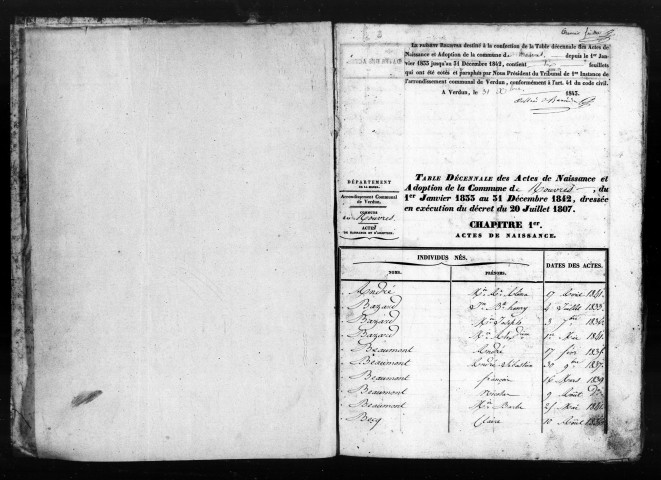 Le présent Registre destiné à la confection de la Table décennale des Actes de
Naissance et Adoption de la commune d depuis le 1er Jan-
vier 1833 jusqu'au 31 Décembre 1842, contient feuillets
qui ont été cotés et paraphés par Nous Président du Tribunal de 1re Instance de
l'arrondissement communal de Verdun, conformément à l'art. 41 du code civil.
A Verdun, le 31 1843.
DÉPARTEMENT
DE LA MEUSE.
Arrondissement Communal
de Verdun.
COMMUNE
de Rouvres.
ACTES
DE NAISSANCE ET D'ADOPTION.
Table Décennale des Actes de Naissance et
Adoption de la Commune de Rouvres, du
1er Janvier 1833 au 31 Décembre 1842, dressée
en exécution du décret du 20 Juillet 1807.
CHAPITRE 1er.
ACTES DE NAISSANCE.
INDIVIDUS NÉS. DATES DES ACTES.
NOMS. PRÉNOMS.
André 17 Avril 1841.
Bazard Jn Bte henry 4 Juillet 1833.
Bazard Joseph 3 7bre 1836.
Bazard 1er Mai 1841.
Beaumont André 17 fevr 1835.
Beaumont André Sébastien 30 9bre 1837.
Beaumont françois 16 Mars 1839
Beaumont Nicolas 9 Aout do
Beaumont Barbe 25 Mai 1842.
Becq Claire 10 Aout